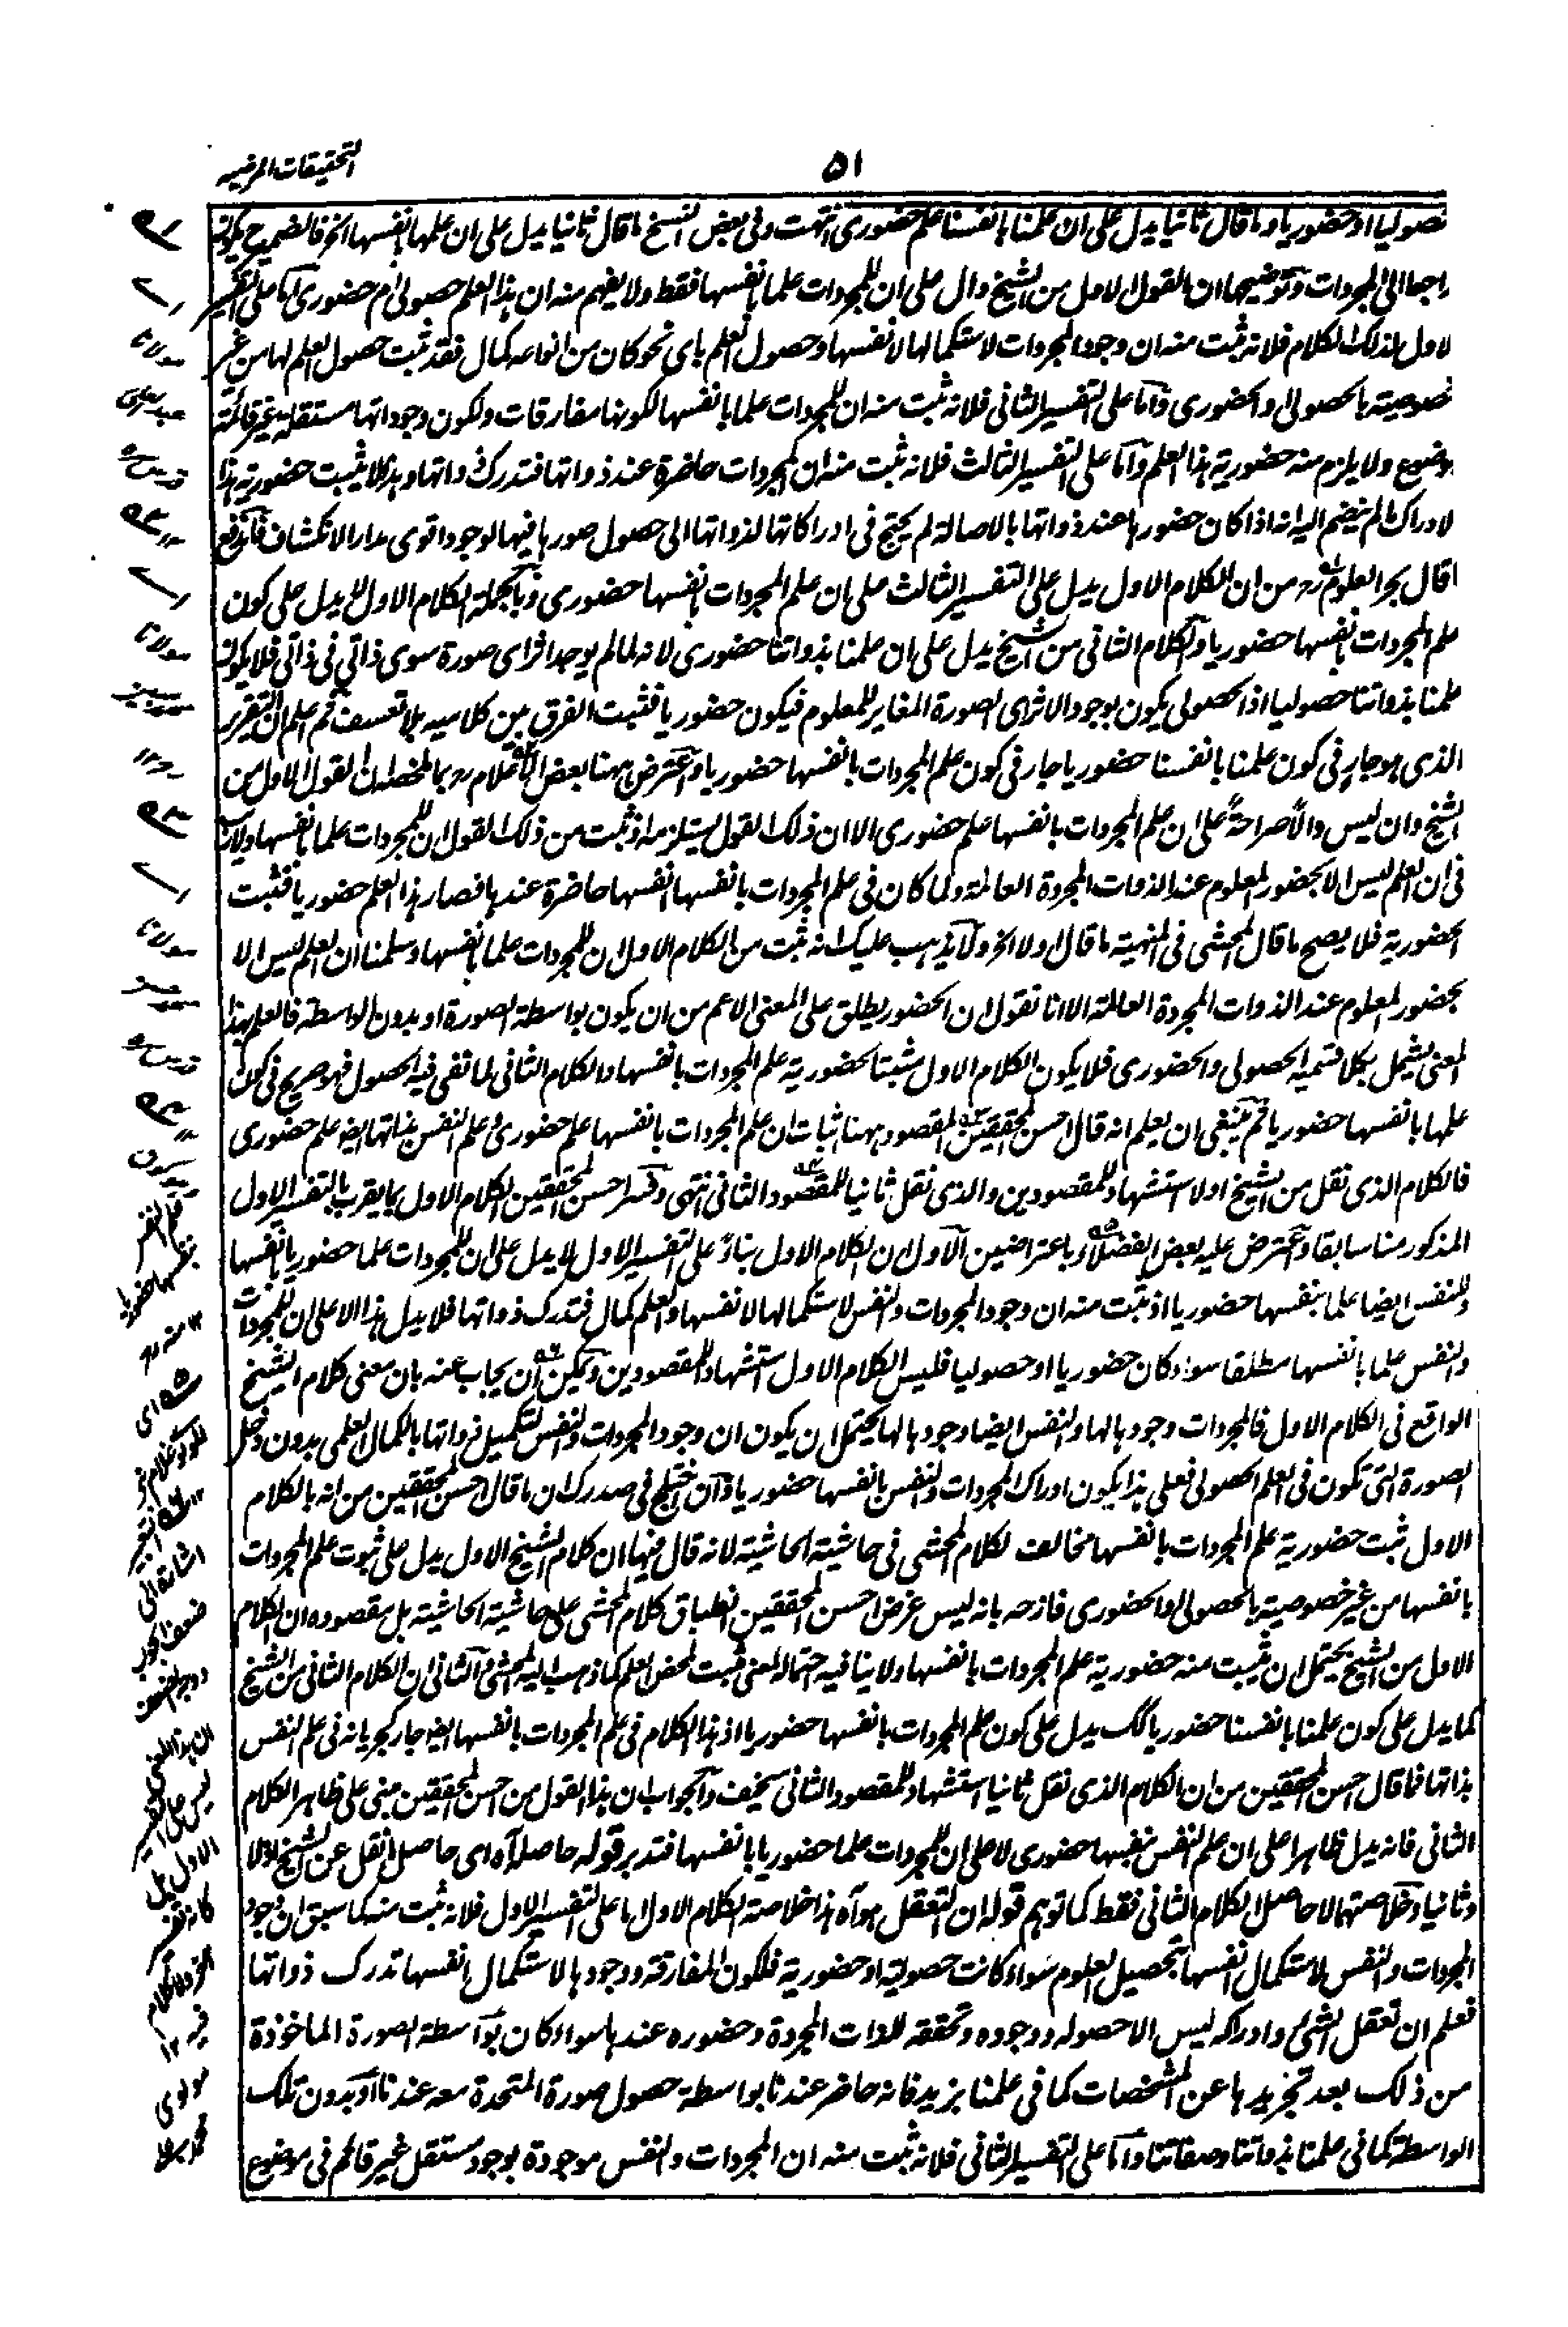 التحقيقات المرضية
٥١
حصوليا او حضوريا وما قال ثانيا يدل على ان علمنا بانفسنا علم حضوري انتهت وفي بعض النسخ ما قال ثانيا يدل على ان علمها بانفسها الخ فالضمير ح يكون
راجعا الى المجردات وتوضيحها ان القول الاول من الشيخ دال على ان للمجردات علما بانفسها فقط ولا يفهم منه ان هذا العلم حصولي ام حضوري اما على التفسير
الاول لذلك الكلام فلانه ثبت منه ان وجود المجردات لاستكمالها لانفسها وحصول العلم باي نحو كان من انواعه كمال فقد ثبت حصول العلم لها من غير
خصوصيته بالحصولي والحضوري واما على التفسير الثاني فلانه ثبت منه ان للمجردات علما بانفسها لكونها مفارقات ولكون وجوداتها مستقلة غير قائمة
بموضوع ولا يلزم منه حضورية هذا العلم واما على التفسير الثالث فلانه ثبت منه ان المجردات حاضرة عند ذواتها فتدرك ذواتها وبهذا لا يثبت حضورية هذا
الادراك ما لم ينضم اليه انه اذا كان حضورها عند ذواتها بالاصالة لم يحتج في ادراكاتها لذواتها الى حصول صورها فيها لوجود اقوى مدار الانكشاف فاندفع
ما قال بحر العلوم رح من ان الكلام الاول يدل على التفسير الثالث على ان علم المجردات بانفسها حضوري وبالجملة الكلام الاول لا يدل على كون
علم المجردات بانفسها حضوريا والكلام الثاني من الشيخ يدل على ان علمنا بذواتنا حضوري لانه لما لم يوجد اثر اى صورة سوى ذاتي في ذاتي فلا يكون
علمنا بذواتنا حصوليا اذ الحصولي يكون بوجود الاثر اى الصورة المغاير للمعلوم فيكون حضوريا فثبت الفرق بين كلاميه بلا تعسف ثم اعلم ان التقرير
الذي هو جار في كون علمنا بانفسنا حضوريا جار في كون علم المجردات بانفسها حضوريا واعترض ههنا بعض الاعلام رح بما ملخصه ان القول الاول من
الشيخ وان ليس دالا صراحة على ان علم المجردات بانفسها علم حضوري الا ان ذلك القول يستلزمه اذ ثبت من ذلك القول ان للمجردات علما بانفسها ولا ريب
في ان العلم ليس الا بحضور المعلوم عند الذوات المجردة العالمة ولما كان في علم المجردات بانفسها انفسها حاضرة عندها فصار هذا العلم حضوريا فثبت
الحضورية فلا يصح ما قال المحشي في المنهية ما قال اولا الخ ولا يذهب عليك انه ثبت من الكلام الاول ان للمجردات علما بانفسها وسلمنا ان العلم ليس الا
بحضور المعلوم عند الذوات المجردة العالمة الا انا نقول ان الحضور يطلق على المعنى الاعم من ان يكون بواسطة الصورة او بدون الواسطة فالعلم بهذا
المعنى يشمل بكلا قسميه الحصولي والحضوري فلا يكون الكلام الاول مثبتا لحضورية علم المجردات بانفسها والكلام الثاني لما نفى فيه الحصول فهو صريح في كون
علمها بانفسها حضوريا ثم ينبغي ان يعلم انه قال احسن المحققين المقصود ههنا اثبات ان علم المجردات بانفسها علم حضوري وعلم النفس بذاتها ايضا علم حضوري
فالكلام الذي نقل من الشيخ اولا استشهاد للمقصودين والذي نقل ثانيا للمقصود الثاني انتهى وفسر احسن المحققين الكلام الاول بما يقرب بالتفسير الاول
المذكور منا سابقا واعترض عليه بعض الفضلاء باعتراضين الاول ان الكلام الاول بناء على التفسير الاول لا يدل على ان للمجردات علما حضوريا بانفسها
وللنفس ايضا علما بنفسها حضوريا اذ ثبت منه ان وجود المجردات والنفس لاستكمالها لانفسها والعلم كمال فتدرك ذواتها فلا يدل هذا الا على ان للمجردات
والنفس علما بانفسها مطلقا سواء كان حضوريا او حصوليا فليس الكلام الاول استشهادا للمقصودين ويمكن ان يجاب عنه بان معنى كلام الشيخ
الواقع في الكلام الاول فالمجردات وجودها لها والنفس ايضا وجودها لها يحتمل ان يكون ان وجود المجردات والنفس لتكميل ذواتها بالكمال العلمي بدون دخل
الصورة التي تكون في العلم الحصولي فعلى هذا يكون ادراك المجردات والنفس بانفسها حضوريا وان اختلج في صدرك ان ما قال احسن المحققين من انه بالكلام
الاول ثبت حضورية علم المجردات بانفسها مخالف لكلام المحشي في حاشية الحاشية لانه قال فيها ان كلام الشيخ الاول يدل على ثبوت علم المجردات
بانفسها من غير خصوصيته بالحصولي والحضوري فازحه بانه ليس غرض احسن المحققين انطباق كلام المحشي على حاشية الحاشية بل مقصوده ان الكلام
الاول من الشيخ يحتمل ان يثبت منه حضورية علم المجردات بانفسها ولا ينافيه احتماله لمعنى يثبت لمحض العلم كما ذهب اليه المحشي والثاني ان الكلام الثاني من الشيخ
كما يدل على كون علمنا بانفسنا حضوريا كك يدل على كون علم المجردات بانفسها حضوريا اذ هذا الكلام في علم المجردات بانفسها ايضا جار كجريانه في علم النفس
بذاتها فما قال احسن المحققين من ان الكلام الذي نقل ثانيا استشهاد للمقصود الثاني سخيف والجواب ان هذا القول من احسن المحققين مبني على ظاهر الكلام
الثاني فانه يدل ظاهرا على ان علم النفس بنفسها حضوري لا على ان للمجردات علما حضوريا بانفسها فتدبر قوله حاصله آه اى حاصل ما نقل عن الشيخ اولا
وثانيا وخلاصتهما لا حاصل الكلام الثاني فقط كما توهم قوله ان التعقل هو آه هذا خلاصة الكلام الاول اما على التفسير الاول فلانه ثبت منه كما سبق ان وجود
المجردات والنفس لاستكمال انفسها بتحصيل العلوم سواء كانت حصولية او حضورية فلكون المفارقة ووجودها لاستكمال انفسها تدرك ذواتها
فعلم ان تعقل الشئ وادراكه ليس الا حصوله ووجوده وتحققه للذوات المجردة وحضوره عندها سواء كان بواسطة الصورة الماخوذة
من ذلك بعد تجريدها عن المشخصات كما في علمنا بزيد فانه حاضر عندنا بواسطة حصول صورة المتحدة معه عندنا او بدون تلك
الواسطة كما في علمنا بذواتنا وصفاتنا واما على التفسير الثاني فلانه ثبت منه ان المجردات والنفس موجودة بوجود مستقل غير قائم في موضوع